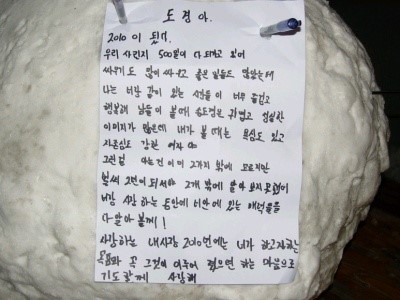 도경아.
2010이 됬다.
우리 사린지 500일이 다 되가고 있어
싸우기도 많이 싸우고 좋은 일들도 많았는데
나는 너랑 같이 있는 시간들이 너무 즐겁고
행복해 남들이 볼때 송도경은 귀엽고 성실한
이미지가 많은데 내가 볼 때는 욕심도 있고
자존심도 강한 여자야
그런걸 아는건 이미 2가지 밖에 모르지만
벌써 2년이 되서야 2개 밖에 알아보지 못했어
너랑 사랑 하는 동안에 너안에 있는 매력들을
다 알아 볼께!
사랑하는 내사랑 2010년에는 너가 하고자하는
목표와 꼭 그것이 이루어 졌으면 하는 마음으로
기도 할께 사랑해